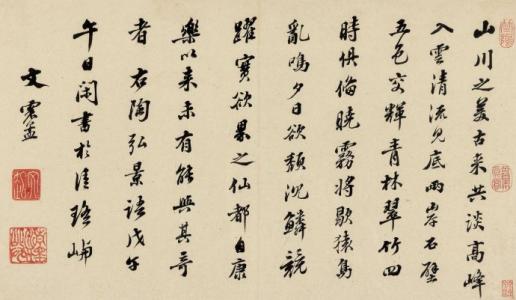 山川之美古来共談高峰
入雲清流見底兩岸石壁
五色交輝青林翠竹四
時俱備曉霧將歇猿鳥
亂鳴夕日欲頹沈鱗競
躍實欲界之仙都自康
樂以来未有能與其奇
者 右陶弘景語戊午
午日閑書於清瑤嶼
文震孟